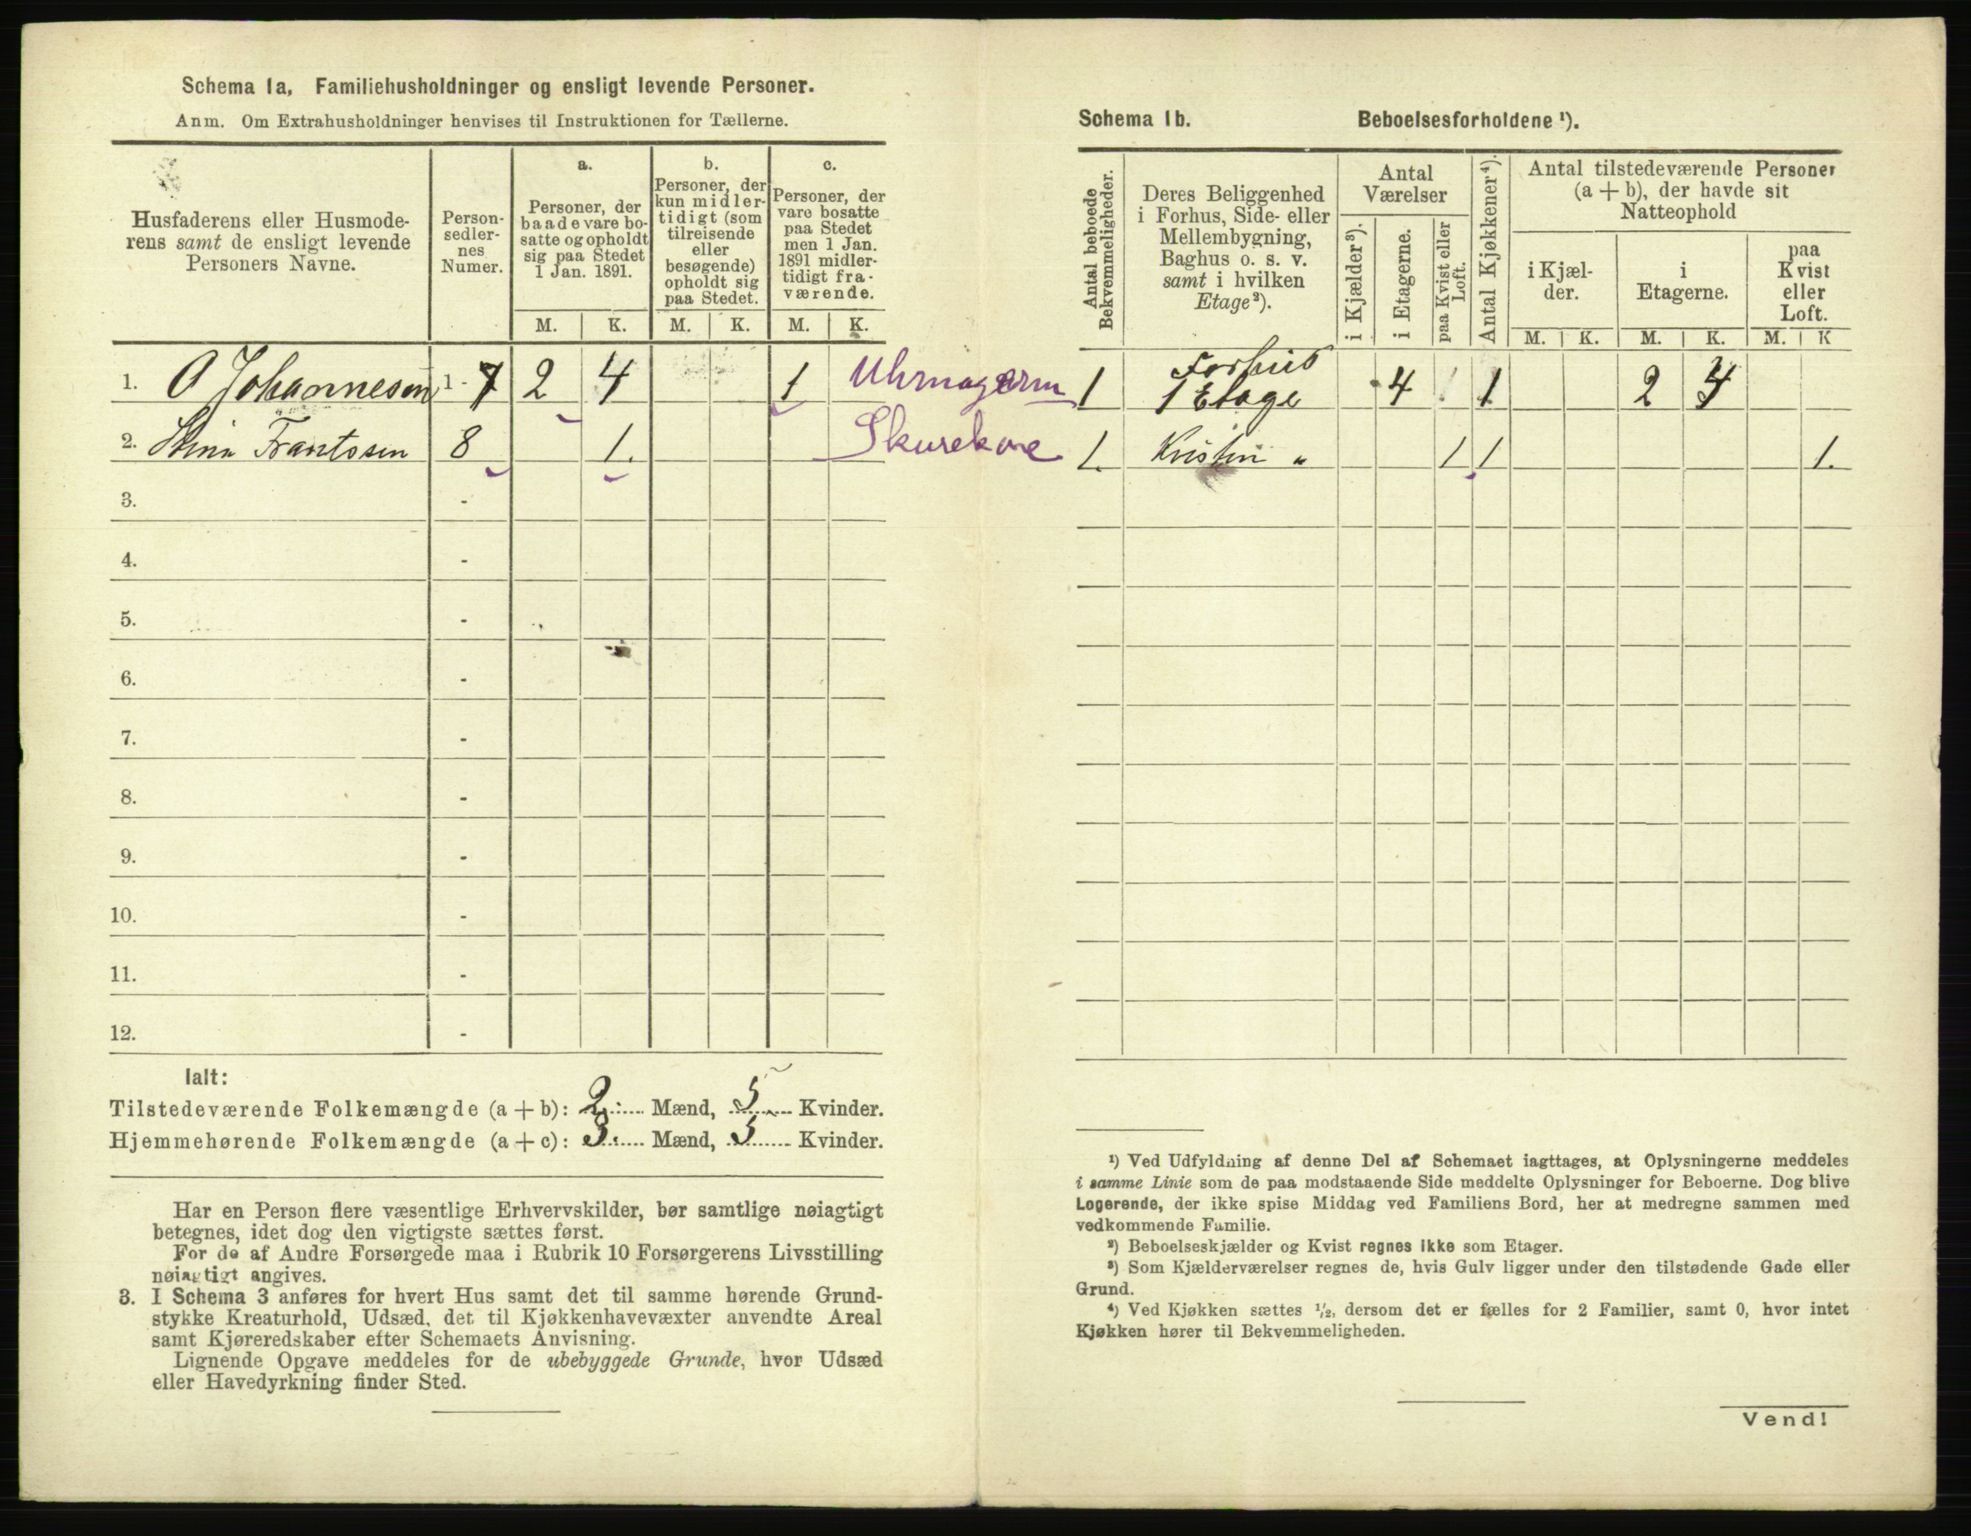 Schema 1a, Familiehusholdninger og ensligt levende Personer.
Anm. Om Extrahusholdninger henvises til Instruktionen for Tællerne.
Husfaderens eller Husmode-
rens samt de ensligt levende
Personers Navne.
Person-
sedler-
nes
Numer.
a.
Personer, der
baade vare bo-
satte og opholdt
sig paa Stedet
1 Jan. 1891.
b.
Personer, der
kun midler-
tidigt (som
tilreisende
eller
besøgende)
opholdt sig
paa Stedet.
c.
Personer, der
vare bosatte
paa Stedet
men 1 Jan.
1891 midler-
tidigt fra-
værende.
M. K. M. K. M. K.
1. O Johannesen 1 - 7 2 4 1 Uhrmagerm
2. Stina Frantssen 8 1. Skurekone
3. -
4. -
5. -
6. -
7. -
8. -
9. -
10. -
11. -
12. -
Ialt:
Tilstedeværende Folkemængde (a + b): 2 Mænd, 5 Kvinder.
Hjemmehørende Folkemængde (a + c): 3. Mænd, 5 Kvinder.
Har en Person flere væsentlige Erhvervskilder, bør samtlige nøiagtigt
betegnes, idet dog den vigtigste sættes først.
For de af Andre Forsørgede maa i Rubrik 10 Forsørgerens Livsstilling
nøiagtigt angives.
3. I Schema 3 anføres for hvert Hus samt det til samme hørende Grund-
stykke Kreaturhold, Udsæd, det til Kjøkkenhavevæxter anvendte Areal
samt Kjøreredskaber efter Schemaets Anvisning.
Lignende Opgave meddeles for de ubebyggede Grunde, hvor Udsæd
eller Havedyrkning finder Sted.
Schema 1b. Beboelsesforholdene ¹).
Antal beboede
Bekvemmeligheder.
Deres Beliggenhed
i Forhus, Side- eller
Mellembygning,
Baghus o. s. v.
samt i hvilken
Etage²).
Antal
Værelser
i Kjælder³).
i Etagerne.
paa Kvist eller
Loft.
Antal Kjøkkener⁴).
Antal tilstedeværende Personer
(a + b), der havde sit
Natteophold
i Kjæl-
der.
i
Etagerne.
paa
Kvist
eller
Loft.
M. K. M. K. M. K
Forhus
1 1 Etage 4 1 2 4
1. Kvisten " 1 1 1.
¹) Ved Udfyldning af denne Del af Schemaet iagttages, at Oplysningerne meddeles
i samme Linie som de paa modstaaende Side meddelte Oplysninger for Beboerne. Dog blive
Logerende, der ikke spise Middag ved Familiens Bord, her at medregne sammen med
vedkommende Familie.
²) Beboelseskjælder og Kvist regnes ikke som Etager.
³) Som Kjælderværelser regnes de, hvis Gulv ligger under den tilstødende Gade eller
Grund.
⁴) Ved Kjøkken sættes ½, dersom det er fælles for 2 Familier, samt 0, hvor intet
Kjøkken hører til Bekvemmeligheden.
Vend!